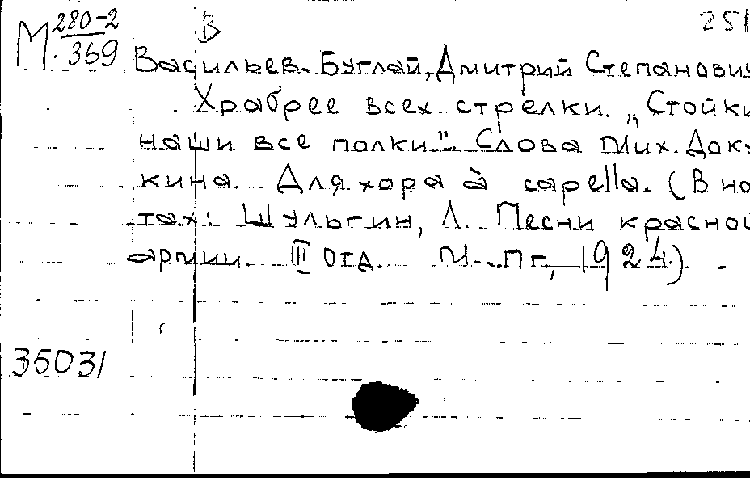 М 280-2 В 251
М. 369 Васильев-Буглай, Дмитрий Степанович
Храбрее всех стрелки. „Стойки
наши все полки". Слова Мих. Док-
кина. Для хора à capella. (В но
тах: Шульгин, Л. Песни красной
армии. III отд. М.-Пг, 1924.)
35031